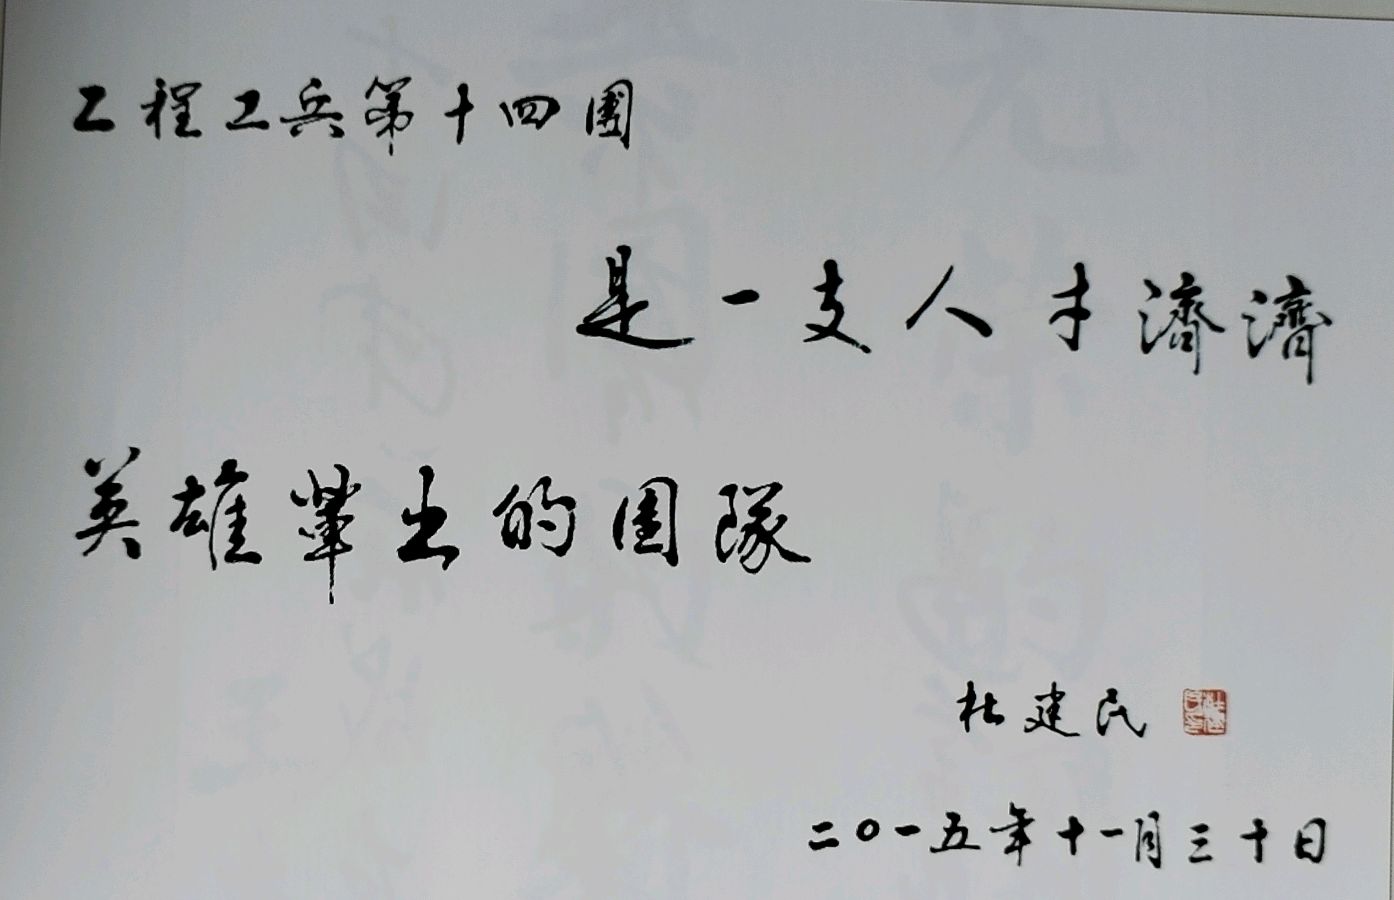 工程工兵第十四團
是一支人才濟濟
英雄輩出的团隊
杜建民
二〇一五年十一月三十日